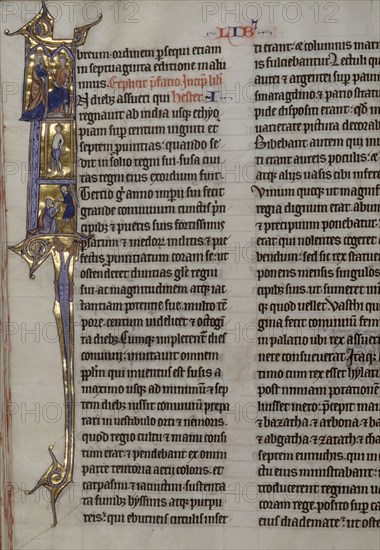 LIB'
breum. ordinem psequi etiam
in septuaginta editione malu
imus. Explicit pfatio. Incipit lib
A dieb3 assueri qui Hester. I
regnavit ab india usq3 ethyo
piam sup centum viginti et
septem puintias: quando se
dit in solio regni sui. susa civi
tas regni eius exordium fuit.
Tertio g anno impii sui fecit
grande convivium cunctis pin
cipib3 & pueris suis fortissimis
psarum & medor inclitis & pre
fectis puintiarum coram se: ut
ostenderet divitias glie regni
sui: ac magnitudinem atq3 iac
tantiam potentie sue. multo tem
poze. centum videlicet & octogin
ta dieb3. Cumq3 implerentur dies
convivii: invitavit omnem
pplm qui inventus est susis a
maximo usq3 ad minimum: & sep
tem dieb3 iussit convivium prepa
rari in vestibulo orti & nemoris.
quod regio cultu & manu consi
tum erat. & pendebant ex omni
parte tentoria aerii coloris. et
carpasini & iacinctini. sustenta
ta funib3 byssinis atq3 purpu
reis. qui eburneis circulis inser
ti erant: & columnis mar
is fulciebantur. Lectuli qu
aurei & argentei sup pavim
smaragdino & pario strati
pide dispositi erant: qd
varietate pictura decorab
Bibebant autem qui invitati
ti erant aureis poculis: &
atq3 aliis vasis cibi infere
Vinum quoq3 ut magnif
regia dignum erat. abun
& precipuum ponebatur:
erat qui nolentes cogeret
bendum: sed sic rex statue
ponens mensis singulos
cipib3 suis. ut sumeret
q quod vellet. Vasthi qu
gina fecit convivium fem
in palatio ubi rex assueru
nere consueverat. Itaq3
timo cum rex esset hylari
post nimiam potationem
luisset mero: pcepit
& bazatha: & arbona & ba
& abgatha: & zarath &
septem eunuchis. qui in
tu eius ministrabant:
troducerent reginam va
coram rege. posito sup ca
eius diademate: ut osten